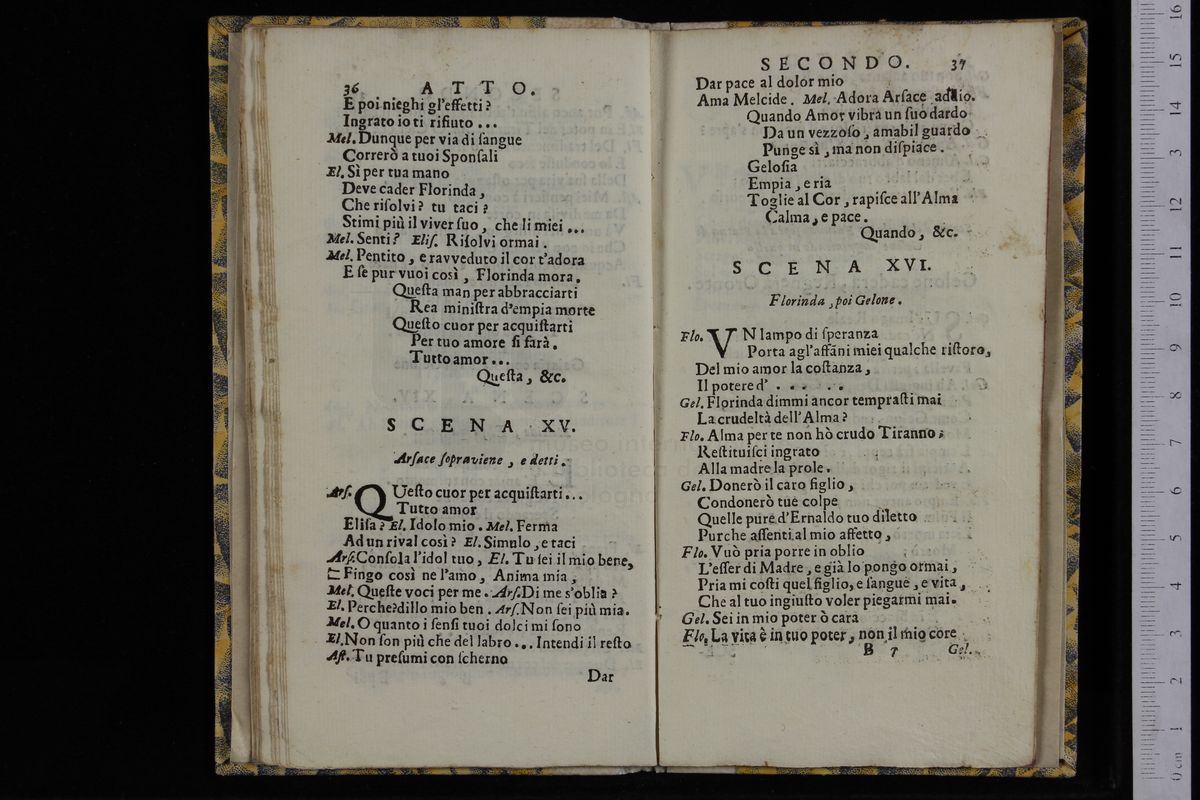 36 ATTO.
E poi nieghi gl'effetti?
Ingrato io ti rifiuto ...
Mel. Dunque per via di ſangue
Correrò a tuoi Sponſali
El. Sì per tua mano
Deve cader Florinda,
Che riſolvi? tu taci?
Stimi più il viver ſuo, che li miei ...
Mel. Senti? Eliſ. Riſolvi ormai.
Mel. Pentito, e ravveduto il cor t'adora
E ſe pur vuoi così, Florinda mora.
Queſta man per abbracciarti
Rea miniſtra d'empia morte
Queſto cuor per acquiſtarti
Per tuo amore ſi farà.
Tutto amor...
Queſta, &c.
SCENA XV.
Arſace ſopraviene, e detti.
Arſ. QUeſto cuor per acquiſtarti...
Tutto amor
Eliſa? El. Idolo mio. Mel. Ferma
Ad un rival così? El. Simulo, e taci
Arſ. Conſola l'idol tuo, El. Tu ſei il mio bene,
Fingo così ne l'amo, Anima mia,
Mel. Queſte voci per me. Arſ. Di me s'oblia?
El. Perche? dillo mio ben. Arſ. Non ſei più mia.
Mel. O quanto i ſenſi tuoi dolci mi ſono
El. Non ſon più che del labro... Intendi il reſto
Aſt. Tu preſumi con ſcherno
Dar
SECONDO. 37
Dar pace al dolor mio
Ama Melcide. Mel. Adora Arſace addio.
Quando Amor vibra un ſuo dardo
Da un vezzoſo, amabil guardo
Punge sì, ma non diſpiace.
Geloſia
Empia, e ria
Toglie al Cor, rapiſce all'Alma
Calma, e pace.
Quando, &c.
SCENA XVI.
Florinda, poi Gelone.
Flo. VN lampo di ſperanza
Porta agl'affãni miei qualche riſtoro,
Del mio amor la coſtanza,
Il potere d' . . . . . .
Gel. Florinda dimmi ancor tempraſti mai
La crudeltà dell'Alma?
Flo. Alma per te non hò crudo Tiranno;
Reſtituiſci ingrato
Alla madre la prole.
Gel. Donerò il caro figlio,
Condonerò tue colpe
Quelle pure d'Ernaldo tuo diletto
Purche aſſenti al mio affetto,
Flo. Vuò pria porre in oblio
L'eſſer di Madre, e già lo pongo ormai,
Pria mi coſti quel figlio, e ſangue, e vita,
Che al tuo ingiuſto voler piegarmi mai.
Gel. Sei in mio poter ò cara
Flo. La vita è in tuo poter, non il mio core
B 7 Gel.